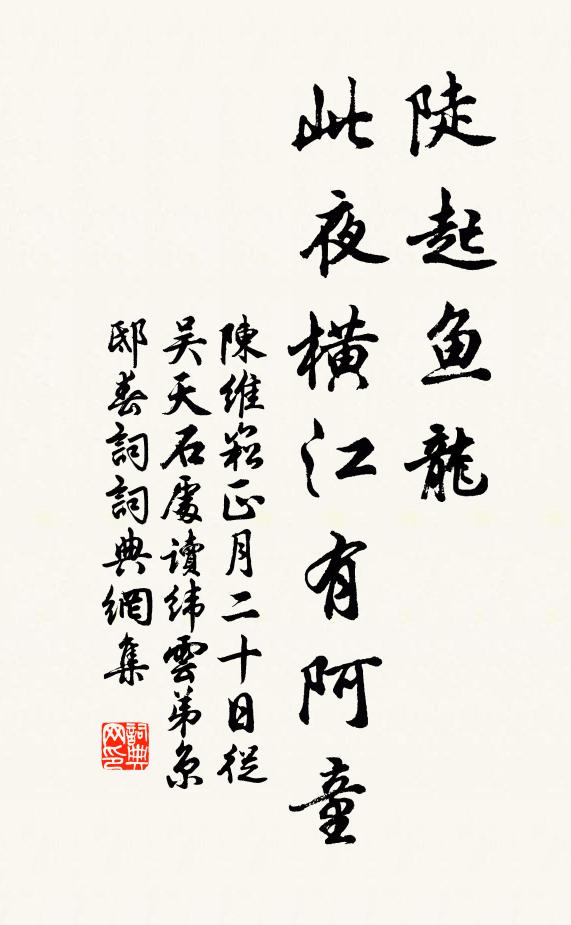 陡起鱼龍
此夜橫江有阿童
陳維崧正月二十日從
吴天石處讀緯雲弟京
邸春詞詞典網集
詞典网印